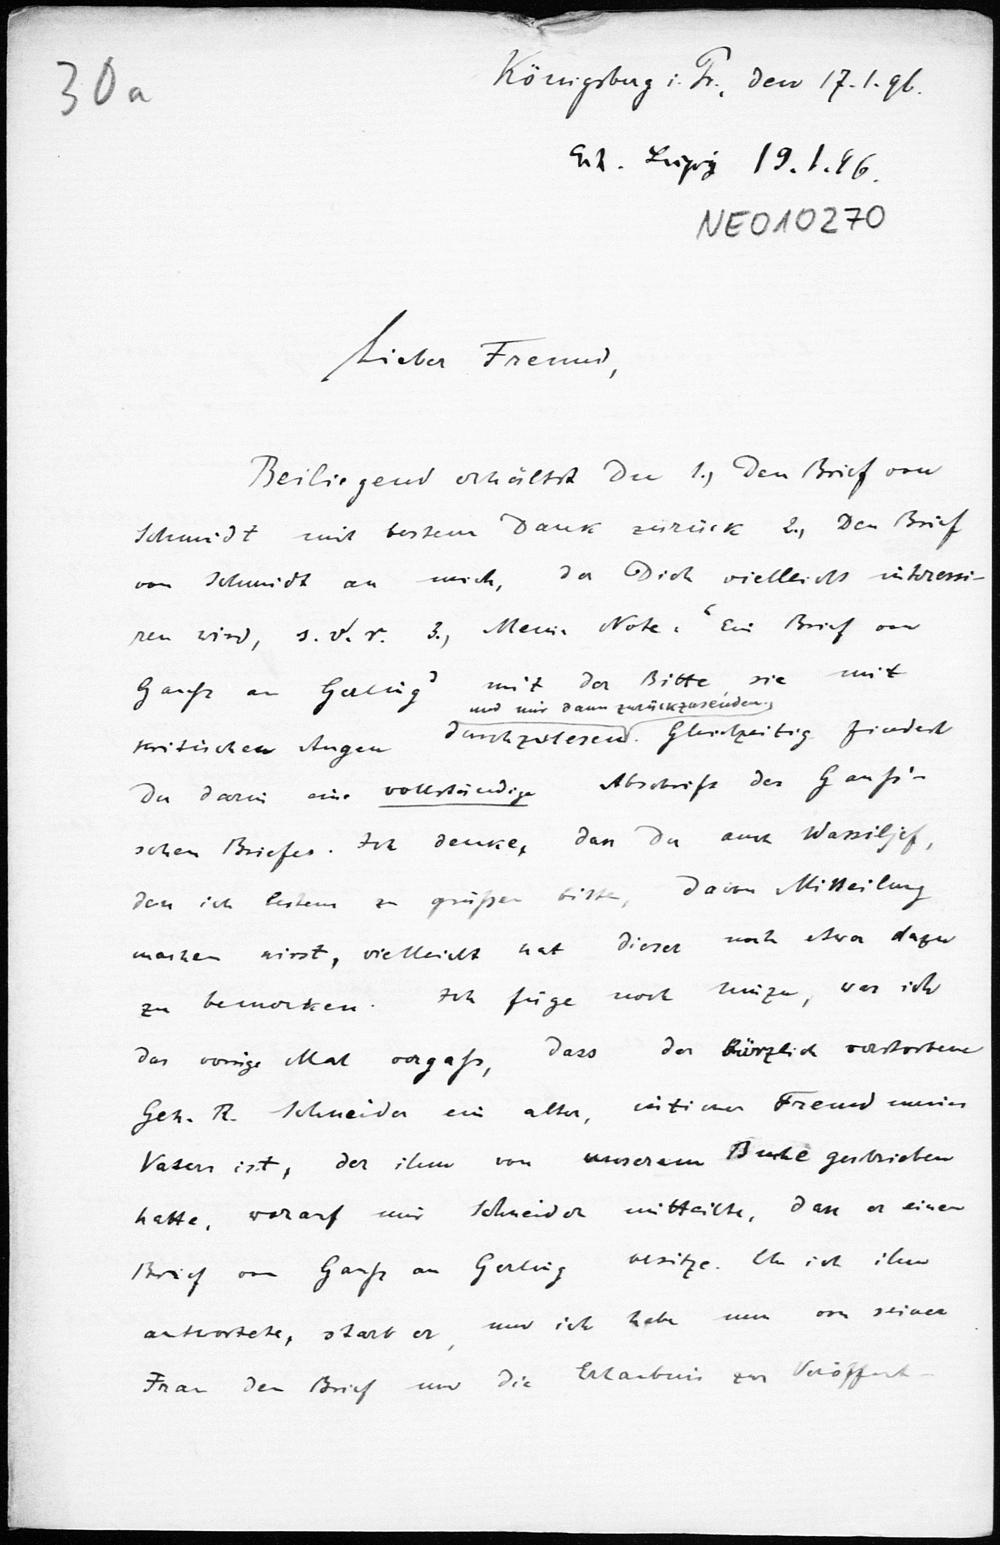 30a
Königsberg i. Pr., den 17.1.96.
Erh. Leipzig 19.1.96.
NE010270
Lieber Freund,
Beiliegend erhältst Du 1., Den Brief von
Schmidt mit bestem Dank zurück 2., Den Brief
von Schmidt an mich, der Dich vielleicht interessi-
ren wird, s. v. r. 3., Meine Note: "Ein Brief von
Gauß an Gerling" mit der Bitte sie mit
und mir dann zurückzusenden.,
kritischen Augen durchzulesen. Gleichzeitig findest
Du darin eine vollständige Abschrift des Gauß'-
schen Briefes. Ich denke, dass Du auch Wassiljef,
den ich bestens zu grüßen bitte, davon Mitteilung
machen wirst, vielleicht hat dieser noch etwas dazu
zu bemerken. Ich füge noch hinzu, was ich
das vorige Mal vergaß, dass der kürzlich verstorbene
Geh. R. Schneider ein alter, intimer Freund meines
Vaters ist, der ihm von unserem Buche geschrieben
hatte, worauf mir Schneider mitteilte, dass er einen
Brief von Gauß an Gerling besitze. Eh ich ihm
antwortete, starb er, und ich habe nun von seiner
Frau den Brief und die Erlaubnis zur Veröffent-